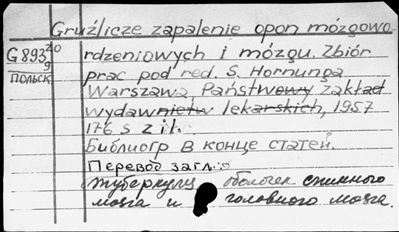 Gruźlicze zapalenie opon mózgowo-
G 893 20/9 rdzeniowych i mózgu. Zbiór
ПОЛЬСК prac pod red. S. Hornunga
Warszawa, Państwowy zakład
wydawnictw lekarskich, 1957
176 s z il.
Библиогр в конце статей.
Перевод загл.:
Туберкулез оболочек спинного
мозга и головного мозга.